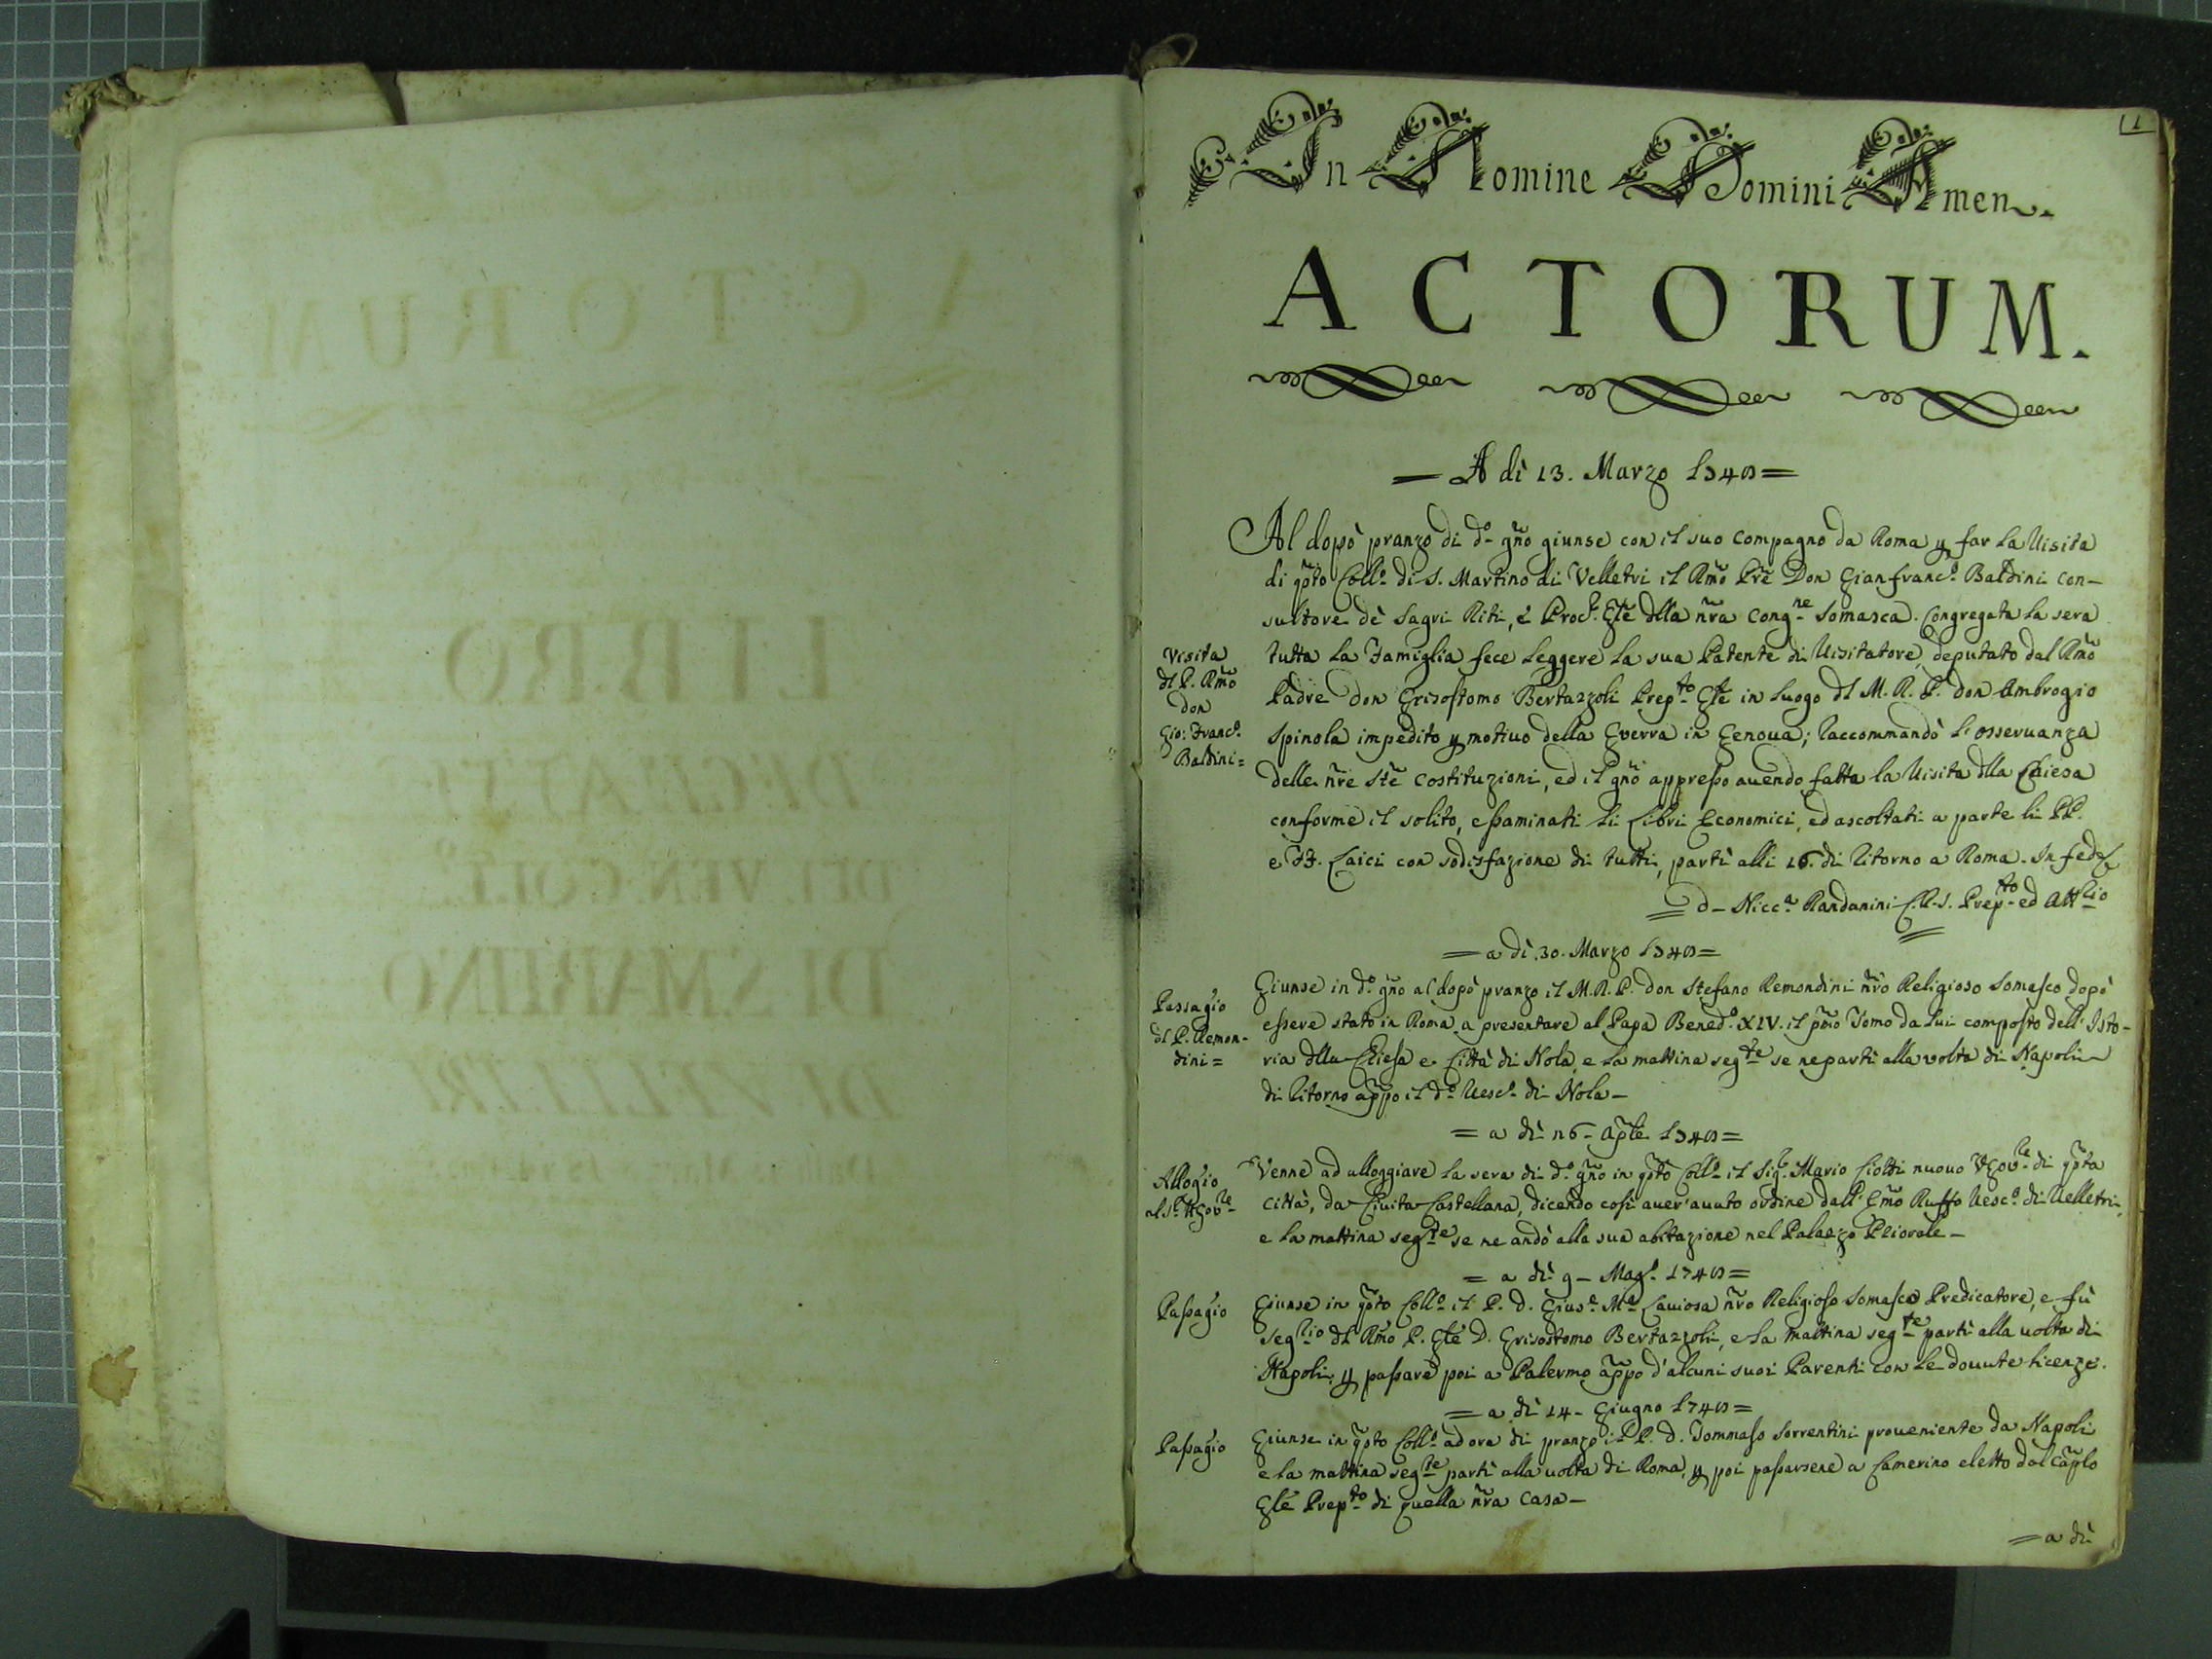 1
In Nomine Domini Amen.
ACTORUM.
= A dì 13. Marzo 1747 =
Al dopò pranzo di d.º gño giunse con il suo Compagno da Roma p far la Visita
di qpto Coll.º di S. Martino di Velletri il Rmo Prẽ Don Gianfranc.º Baldini Con-
sultore dè Sagri Riti, è Proc.r Gle dlla nr̃a Cong.ne Somasca. Congregata la sera
Visita
dl P. Rmo
Don
Gio: Franc.º
Baldini =
tutta la Famiglia fece leggere la sua Patente di Visitatore, deputato dal Rmo
Padre Don Grisostomo Bertazzoli Prep.to Gle in luogo dl M. R. P. Don Ambrogio
Spinola impedito p motivo della Guerra in Genova; Raccommandò l'osservanza
delle nr̃e Ste Costituzioni, ed il gño appresso avendo fatta la Visita dlla Chiesa
conforme il solito, essaminati li Libri Economici, ed ascoltati a parte li PP.
e FF. Laici con sodisfazione di tutti, partì alli 16. di ritorno a Roma. In fede
= D. Nicc.a Randanini C.R.S. Prep.to ed Att.rio
= a dì 30. Marzo 1747 =
Passagio
dl P. Remon-
dini =
Giunse in d.º gño al dopò pranzo il M. R. P. Don Stefano Remondini nr̃o Religioso Somasco dopò
essere stato in Roma a presentare al Papa Bened.º XIV. il pmo Tomo da lui composto dell'Isto-
ria dlla Chiesa e Città di Nola, e la mattina seg.te se ne partì alla volta di Napoli
di ritorno appo il d.º Vesc.º di Nola -
= a dì 26 - Aple 1747 =
Allogio
al S.r Gov.re
Venne ad alloggiare la sera di d.º gño in qpto Coll.º il Sig.r Mario Ciotti nuovo Gov.re di qpta
Città, da Civita Castellana, dicendo così aver' avuto ordine dall' Emo Ruffo Vesc.º di Velletri,
e la mattina seg.te se ne andò alla sua abitazione nel Palazzo Priorale -
= a dì 9 - Mag.º 1747 =
Passagio
Giunse in qpto Coll.º il P. D. Gius.e M.a Caviosa nr̃o Religioso Somasco Predicatore, e fù
Seg.rio dl Rmo P. Gle D. Grisostomo Bertazzoli, e la mattina seg.te partì alla volta di
Napoli, p passare poi a Palermo appo d'alcuni suoi Parenti con le dovute licenze.
= a dì 14 - Giugno 1747 =
Passagio
Giunse in qpto Coll.º ad ora di pranzo il P. D. Tommaso Sorrentini proveniente da Napoli
e la mattina seg.te partì alla volta di Roma, p poi passarsene a Camerino eletto dal Caplo
Gle Prep.to di quella nr̃a Casa -
= a dì